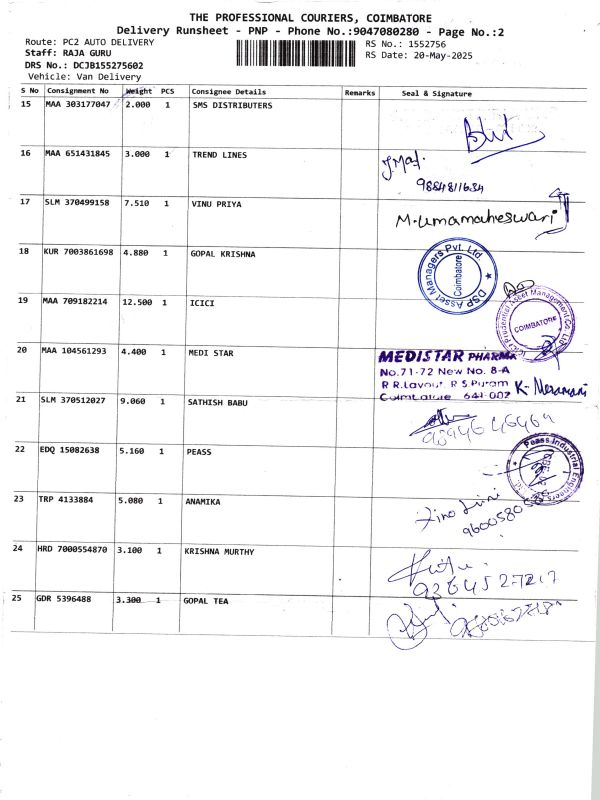 THE PROFESSIONAL COURIERS, COIMBATORE
Delivery Runsheet - PNP - Phone No.:9047080280 - Page No.:2
Route: PC2 AUTO DELIVERY
RS No.: 1552756
Staff: RAJA GURU
RS Date: 20-May-2025
DRS No.: DCJB155275602
Vehicle: Van Delivery
S No Consignment No Weight PCS Consignee Details Remarks Seal & Signature
15 MAA 303177047 2.000 1 SMS DISTRIBUTERS
16 MAA 651431845 3.000 1 TREND LINES
9884811634
17 SLM 370499158 7.510 1 VINU PRIYA
M.Umamaheswari
18 KUR 7003861698 4.880 1 GOPAL KRISHNA
DSP Asset Managers Pvt. Ltd
Coimbatore
19 MAA 709182214 12.500 1 ICICI
ICICI Prudential Asset Management Co. Ltd
COIMBATORE
20 MAA 104561293 4.400 1 MEDI STAR
MEDISTAR PHARMA
No.71-72 New No. 8-A
R R.Layout, R S.Puram
Coimbatore 641-002
21 SLM 370512027 9.060 1 SATHISH BABU
22 EDQ 15082638 5.160 1 PEASS
Peass Industrial Engineers
23 TRP 4133884 5.080 1 ANAMIKA
24 HRD 7000554870 3.100 1 KRISHNA MURTHY
9364527217
25 GDR 5396488 3.300 1 GOPAL TEA